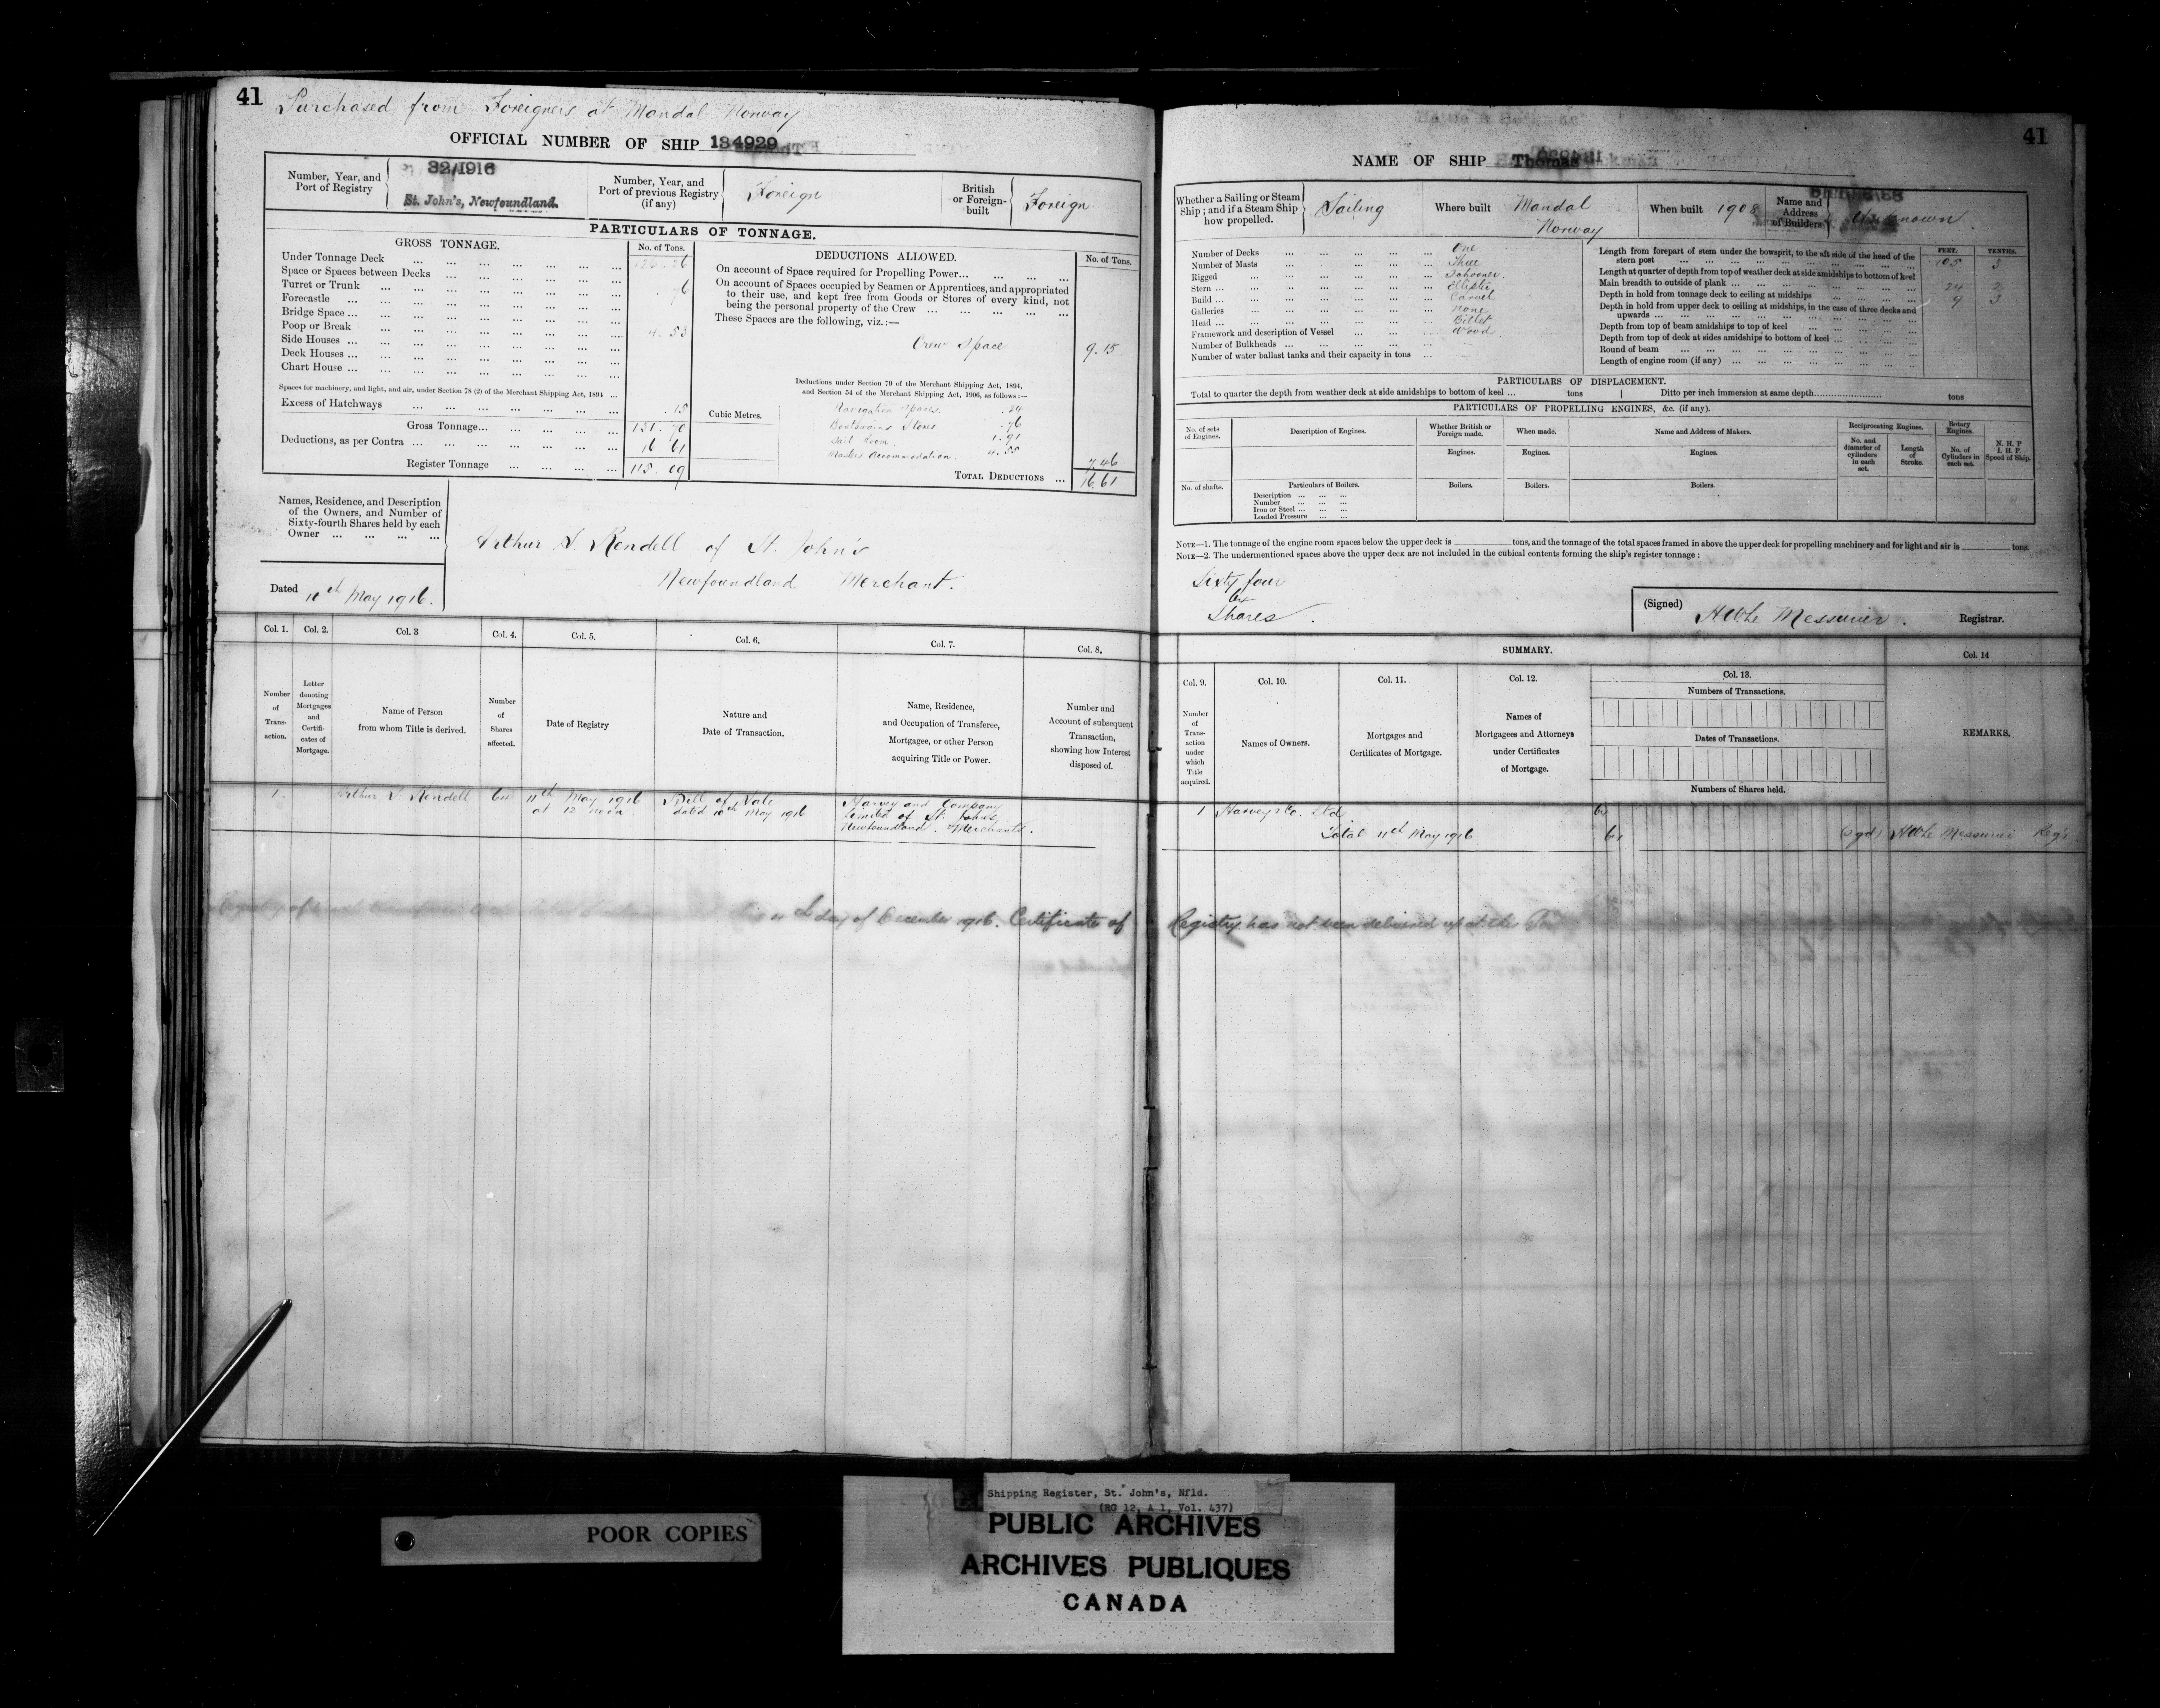 41
Purchased from Foreigners at Mandal Norway
OFFICIAL NUMBER OF SHIP 134929
Number, Year, and Port of Registry
32/1916
St. John's, Newfoundland.
Number, Year, and Port of previous Registry (if any)
Foreign
British or Foreign-built
Foreign
PARTICULARS OF TONNAGE.
GROSS TONNAGE.
No. of Tons.
Under Tonnage Deck
Space or Spaces between Decks
Turret or Trunk
Forecastle
Bridge Space
Poop or Break 4.53
Side Houses
Deck Houses
Chart House
Spaces for machinery, and light, and air, under Section 78 (2) of the Merchant Shipping Act, 1894
Excess of Hatchways .15
Gross Tonnage 131.70
Deductions, as per Contra 16.61
Register Tonnage 115.09
DEDUCTIONS ALLOWED.
No. of Tons.
On account of Space required for Propelling Power
On account of Space occupied by Seamen or Apprentices, and appropriated
to their use, and kept free from Goods or Stores of every kind, not
being the personal property of the Crew
These Spaces are the following, viz.:—
Crew Space 9.15
Deductions under Section 79 of the Merchant Shipping Act, 1894,
and Section 54 of the Merchant Shipping Act, 1906, as follows:—
Cubic Metres.
Navigation Spaces .24
Boatswains Stores .76
Sail Room 1.91
Masters Accommodation 4.55
7.46
TOTAL DEDUCTIONS 16.61
Names, Residence, and Description
of the Owners, and Number of
Sixty-fourth Shares held by each
Owner
Arthur S. Rendell of St. John's
Newfoundland Merchant.
Dated 10th May 1916.
Col. 1. Col. 2. Col. 3 Col. 4. Col. 5. Col. 6. Col. 7. Col. 8.
Number of Transaction.
Letter denoting Mortgages and Certificates of Mortgage.
Name of Person from whom Title is derived.
Number of Shares affected.
Date of Registry
Nature and Date of Transaction.
Name, Residence, and Occupation of Transferee, Mortgagee, or other Person acquiring Title or Power.
Number and Account of subsequent Transaction, showing how Interest disposed of.
1. Arthur S Rendell 64 11th May 1916 at 12 noon Bill of Sale dated 10th May 1916 Harvey and Company Limited of St. Johns Newfoundland. Merchants.
day of December 1916. Certificate of
41
NAME OF SHIP Thomas
Whether a Sailing or Steam Ship; and if a Steam Ship how propelled.
Sailing
Where built
Mandal
Norway
When built 1908
Name and Address of Builders
Unknown
Number of Decks One
Number of Masts Three
Rigged Schooner
Stern Elliptic
Build Carvel
Galleries None
Head Billet
Framework and description of Vessel Wood
Number of Bulkheads
Number of water ballast tanks and their capacity in tons
FEET. TENTHS.
Length from forepart of stem under the bowsprit, to the aft side of the head of the stern post 105 3
Length at quarter of depth from top of weather deck at side amidships to bottom of keel
Main breadth to outside of plank 24 2
Depth in hold from tonnage deck to ceiling at midships 9 3
Depth in hold from upper deck to ceiling at midships, in the case of three decks and upwards
Depth from top of beam amidships to top of keel
Depth from top of deck at sides amidships to bottom of keel
Round of beam
Length of engine room (if any)
PARTICULARS OF DISPLACEMENT.
Total to quarter the depth from weather deck at side amidships to bottom of keel tons Ditto per inch immersion at same depth tons
PARTICULARS OF PROPELLING ENGINES, &c. (if any).
No. of sets of Engines.
Description of Engines.
Whether British or Foreign made.
When made.
Name and Address of Makers.
Reciprocating Engines.
Rotary Engines.
N. H. P
I. H. P.
Speed of Ship.
Engines. Engines. Engines.
No. and diameter of cylinders in each set.
Length of Stroke.
No. of Cylinders in each set.
No. of shafts.
Particulars of Boilers.
Description
Number
Iron or Steel
Loaded Pressure
Boilers. Boilers. Boilers.
NOTE—1. The tonnage of the engine room spaces below the upper deck is tons, and the tonnage of the total spaces framed in above the upper deck for propelling machinery and for light and air is tons.
NOTE—2. The undermentioned spaces above the upper deck are not included in the cubical contents forming the ship's register tonnage:
Sixty four
64
Shares.
(Signed) H W Le Messurier. Registrar.
SUMMARY.
Col. 9. Col. 10. Col. 11. Col. 12. Col. 13. Col. 14
Number of Transaction under which Title acquired.
Names of Owners.
Mortgages and Certificates of Mortgage.
Names of Mortgagees and Attorneys under Certificates of Mortgage.
Numbers of Transactions.
Dates of Transactions.
Numbers of Shares held.
REMARKS.
1 Harvey & Co. Ltd 64
Total 11th May 1916 64 (sgd) H W Le Messurier Reg'r
Registry has not been delivered up at the
Shipping Register, St. John's, Nfld.
(RG 12, A 1, Vol. 437)
POOR COPIES
PUBLIC ARCHIVES
ARCHIVES PUBLIQUES
CANADA